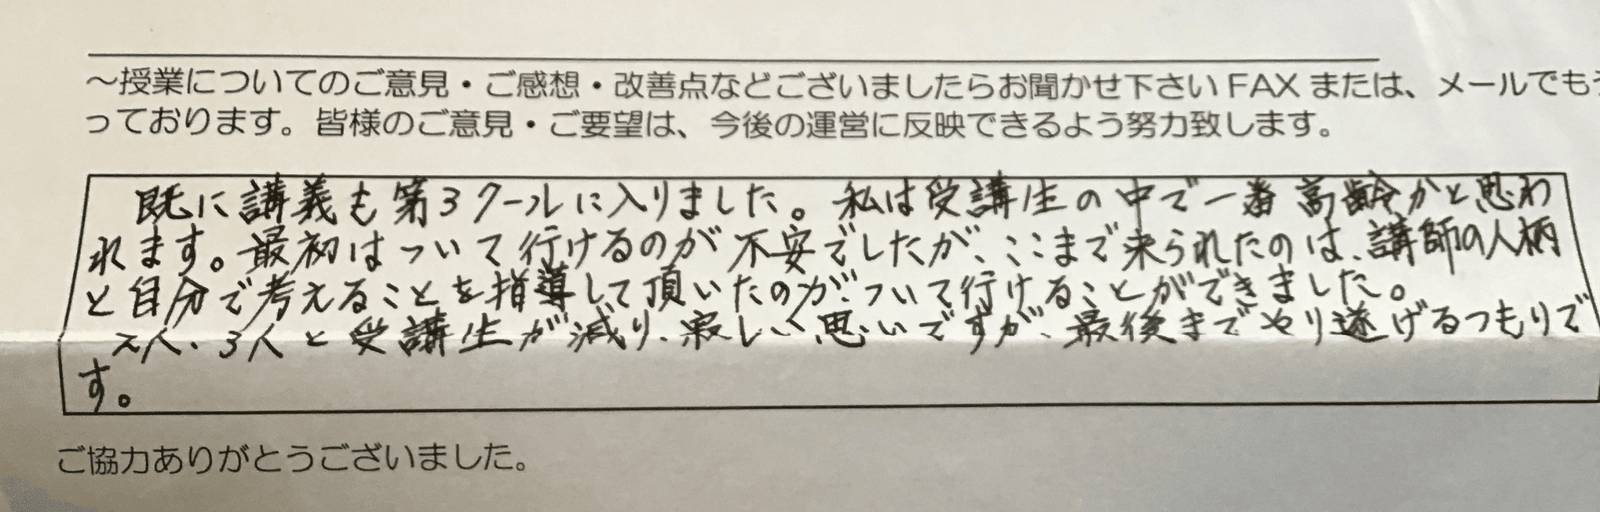 ～授業についてのご意見・ご感想・改善点などございましたらお聞かせ下さい FAX または、メールでも
っております。皆様のご意見・ご要望は、今後の運営に反映できるよう努力致します。
既に講義も第3クールに入りました。私は受講生の中で一番高齢かと思わ
れます。最初はついて行けるのが不安でしたが、ここまで来られたのは、講師の人柄
と自分で考えることを指導して頂いたのがついて行けることができました。
2人、3人と受講生が減り、寂しい思いですが、最後までやり遂げるつもりで
す。
ご協力ありがとうございました。